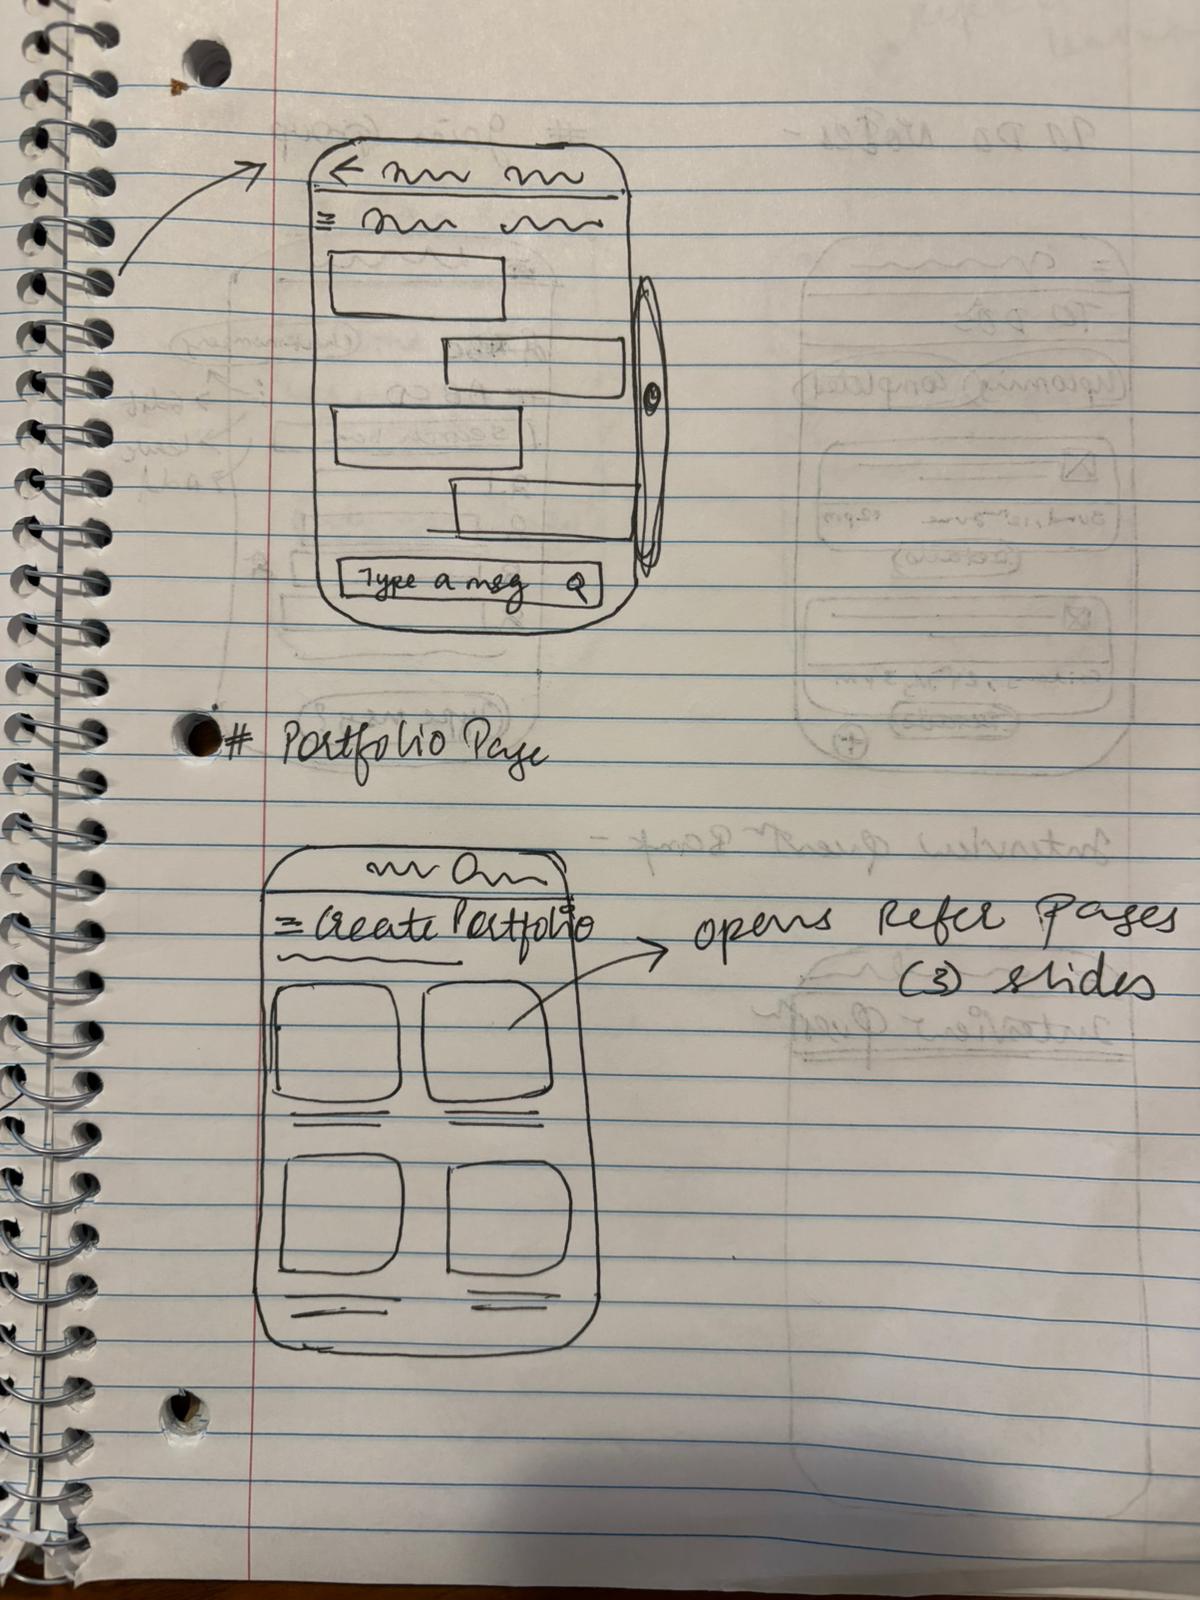 Type a msg
# Portfolio Page
Create Portfolio
opens Refer Pages
(3) slides